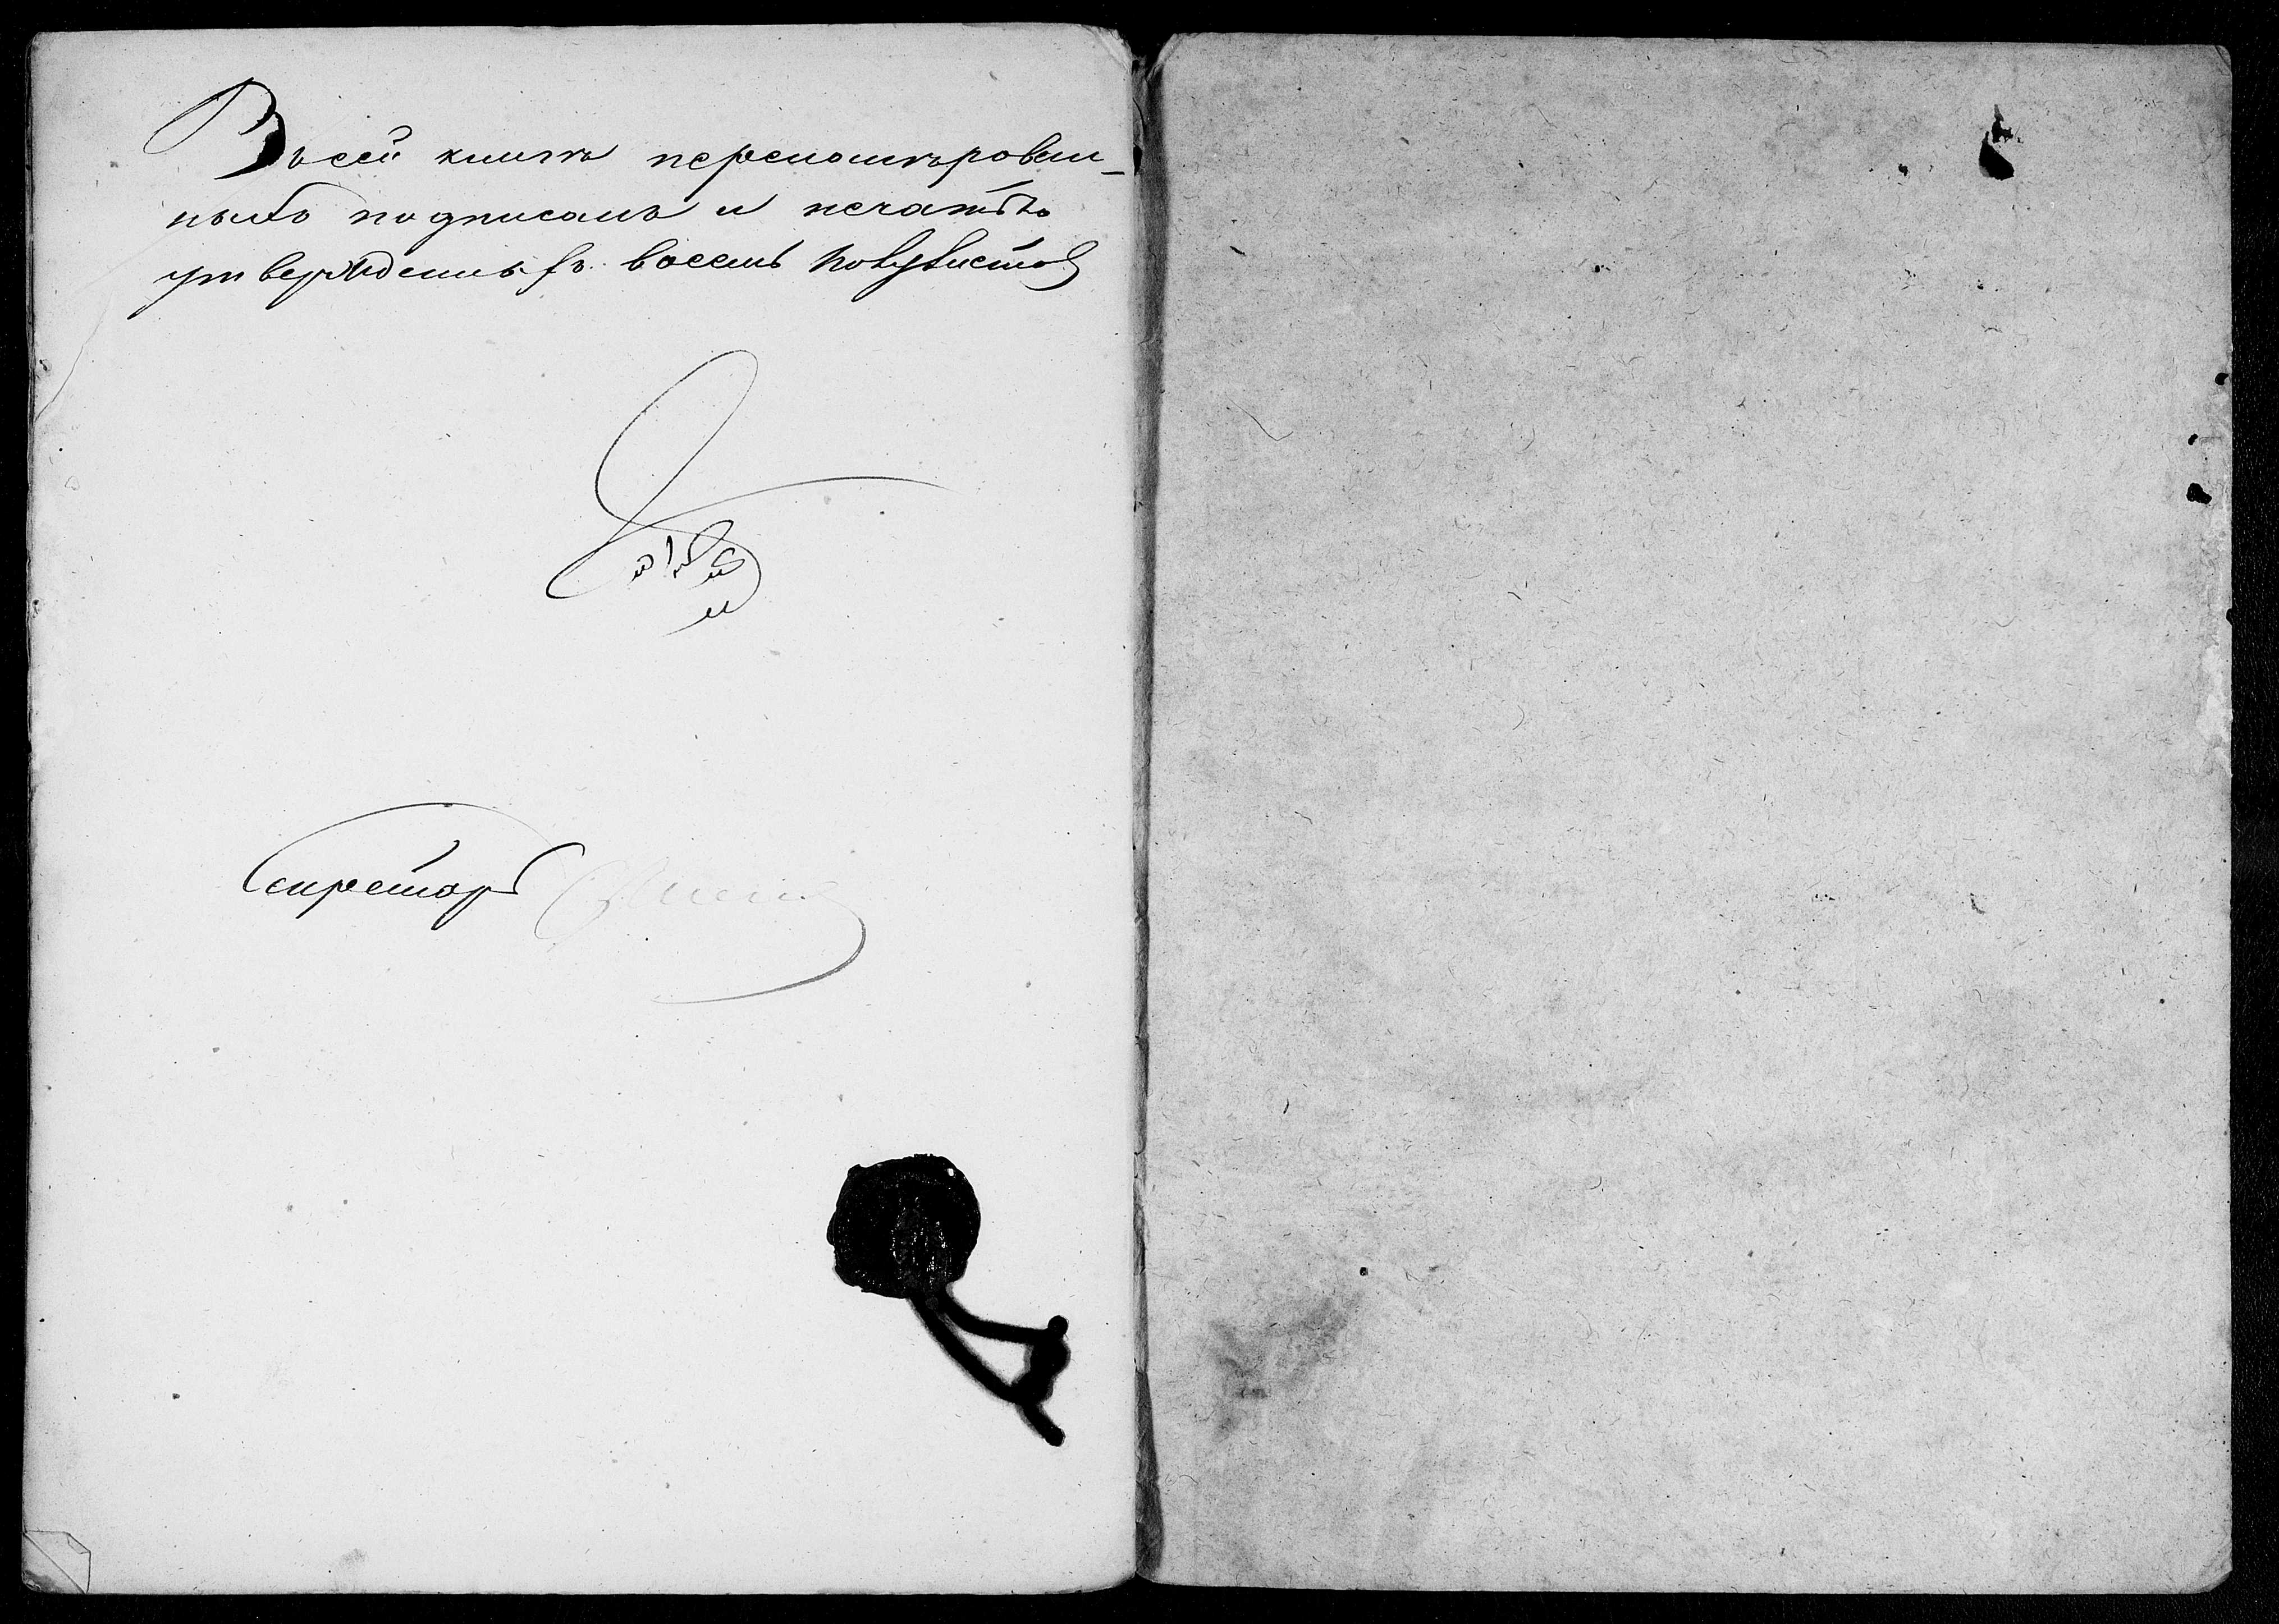 Въ сей книгѣ переномѣрован-
ныхъ подписанъ и печатью
утвержденныхъ восемь полулистовъ
Секретарь